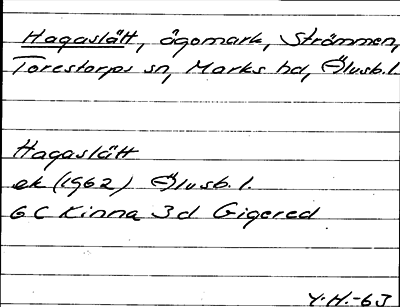 Hagaslätt, ägomark, Strömmen,
Torestorps sn, Marks hd, Älvsb. l.
Hagaslätt
ek (1962) Älvsb. l.
6 C Kinna 3d Gigered
Y.H.-63